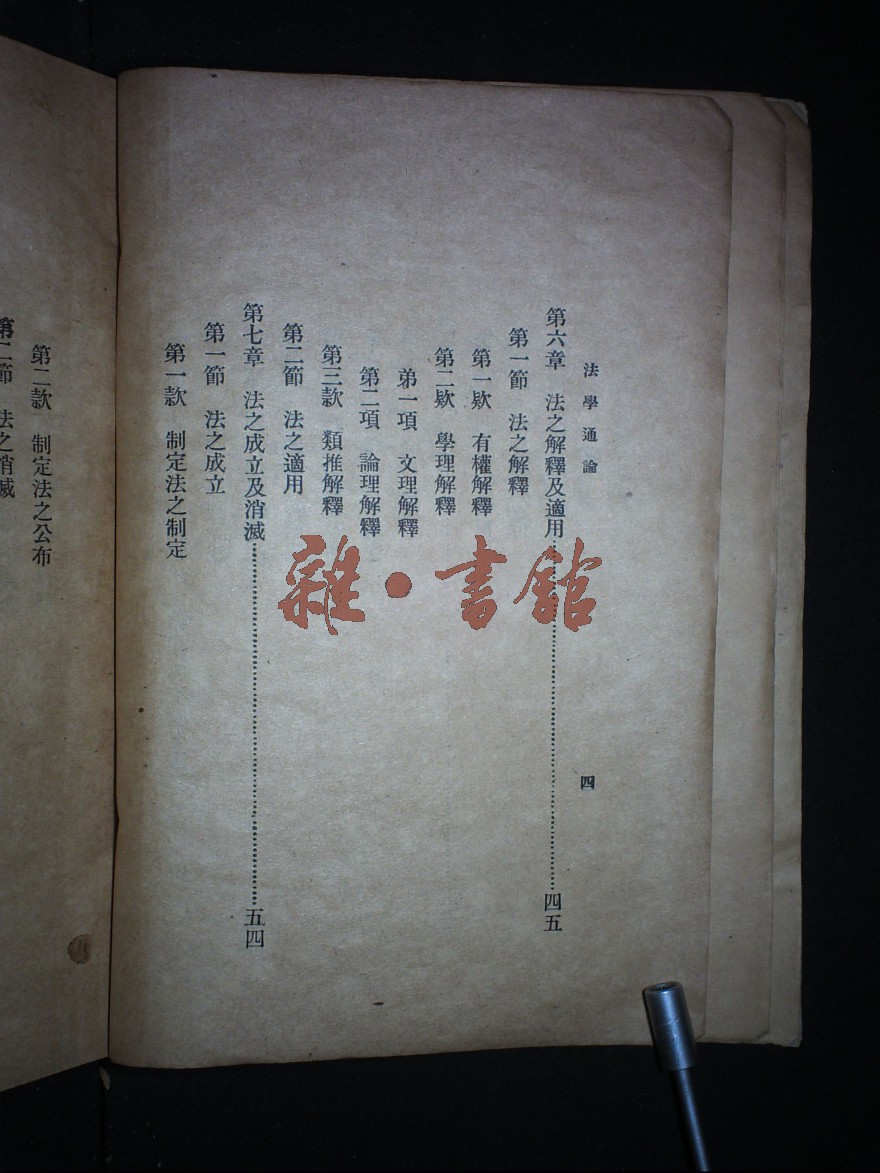 法學通論
四
第六章 法之解釋及適用…………四五
第一節 法之解釋
第一欵 有權解釋
第二欵 學理解釋
弟一項 文理解釋
第二項 論理解釋
第三款 類推解釋
第二節 法之適用
第七章 法之成立及消滅…………五四
第一節 法之成立
第一款 制定法之制定
第二款 制定法之公布
第二節 法之消滅
雜·書館